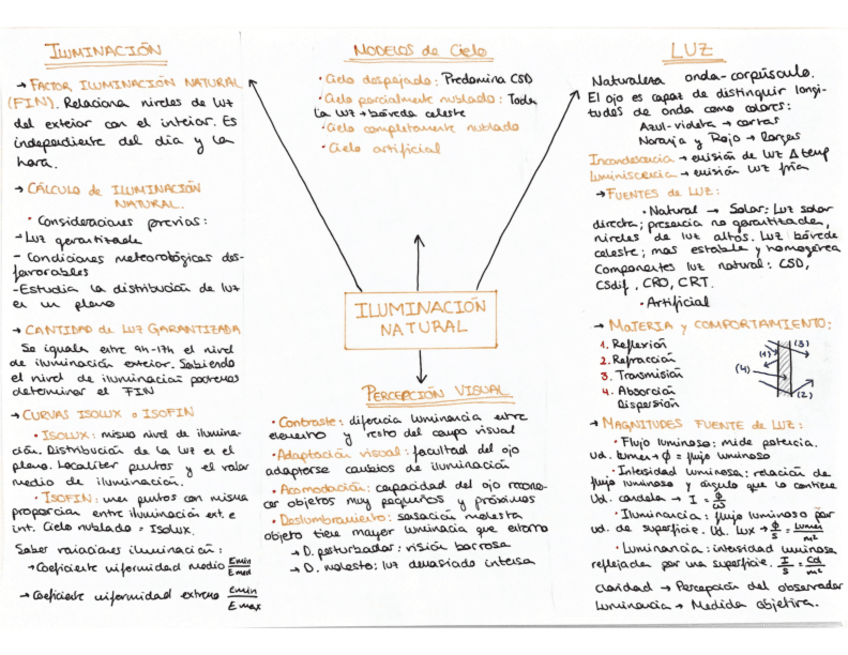 ILUMINACIÓN
→ FACTOR ILUMINACIÓN NATURAL
(FIN). Relaciona niveles de luz
del exterior con el interior. Es
independiente del día y la
hora.
→ CÁLCULO de ILUMINACIÓN
NATURAL.
• Consideraciones previas:
- Luz garantizada
- Condiciones meteorológicas des-
favorables
- Estudia la distribución de luz
en un plano
→ CANTIDAD de LUZ GARANTIZADA
Se iguala entre 9h-17h el nivel
de iluminación exterior. Sabiendo
el nivel de iluminación podremos
determinar el FIN
→ CURVAS ISOLUX o ISOFIN
• ISOLUX: mismo nivel de ilumina-
ción. Distribución de la luz en el
plano. Localizar puntos y el valor
medio de iluminación.
• ISOFIN: unen puntos con misma
proporción entre iluminación ext. e
int. Cielo nublado = ISOLUX.
Saber variaciones iluminación:
→ Coeficiente uniformidad medio Emin/Emed
→ Coeficiente uniformidad extremo Emin/Emax
MODELOS de Cielo
• Cielo despejado: Predomina CSD
• Cielo parcialmente nublado: Toda
la luz → bóveda celeste
• Cielo completamente nublado
• Cielo artificial
ILUMINACIÓN
NATURAL
PERCEPCIÓN VISUAL
• Contraste: diferencia luminancia entre
elemento y resto del campo visual
• Adaptación visual: facultad del ojo
adaptarse cambios de iluminación
• Acomodación: capacidad del ojo recono-
cer objetos muy pequeños y próximos
• Deslumbramiento: sensación molesta
objeto tiene mayor luminancia que entorno
→ D. perturbador: visión borrosa
→ D. molesto: luz demasiado intensa
LUZ
Naturaleza onda-corpúsculo.
El ojo es capaz de distinguir longi-
tudes de onda como colores:
Azul-violeta → cortas
Naranja y Rojo → largas
Incandescencia → emisión de luz Δ temp
Luminiscencia → emisión luz fría
→ FUENTES de LUZ:
• Natural → Solar: Luz solar
directa; presencia no garantizada,
niveles de luz altos. Luz bóveda
celeste; mas estable y homogénea
Componentes luz natural: CSD,
CSdif, CRD, CRT.
• Artificial
→ MATERIA y COMPORTAMIENTO:
1. Reflexión
2. Refracción
3. Transmisión
4. Absorción
Dispersión
(1)
(3)
(4)
(2)
→ MAGNITUDES FUENTE de LUZ:
• Flujo luminoso: mide potencia.
Ud. lumen → Φ = flujo luminoso
• Intensidad luminosa: relación de
flujo luminoso y ángulo que lo contiene
Ud. candela → I = Φ/ω
• Iluminancia: flujo luminoso por
ud. de superficie. Ud. Lux → Φ/S = lumen/m²
• Luminancia: intensidad luminosa
reflejada por una superficie. I/S = Cd/m²
Claridad → Percepción del observador
Luminancia → Medida objetiva.